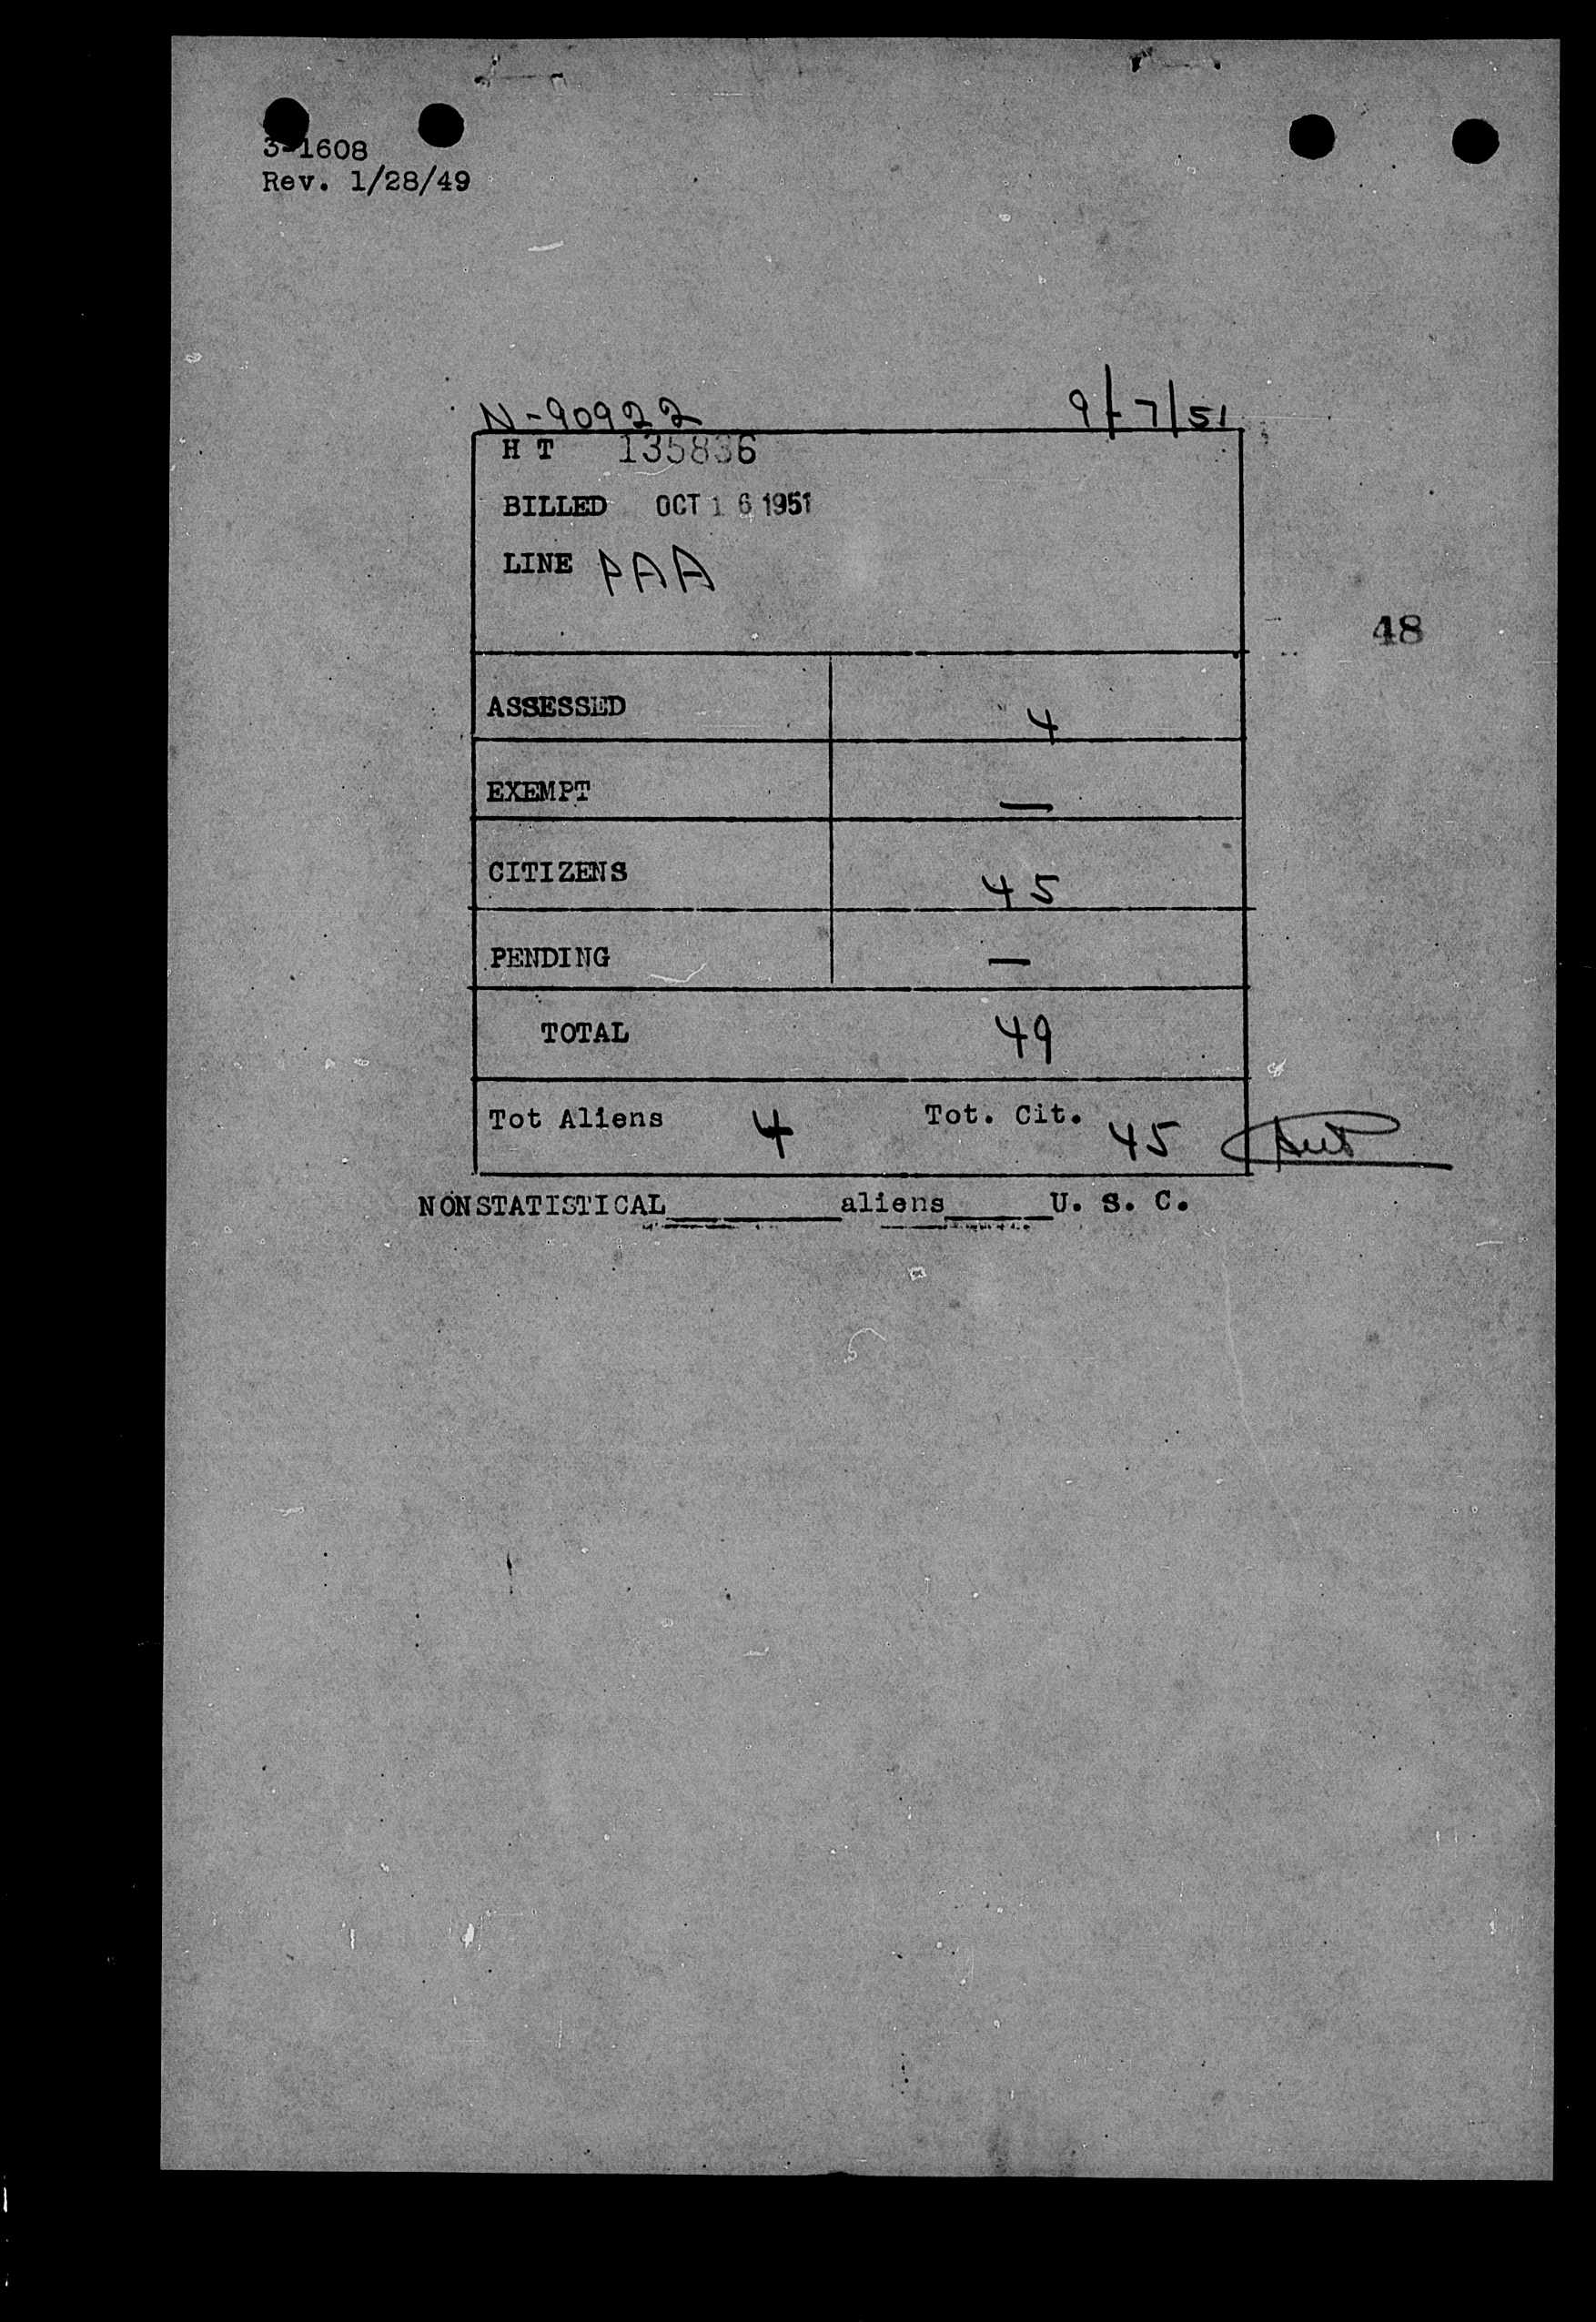 3-1608
Rev. 1/28/49
N-90922 9/7/51
H T 135836
BILLED OCT 16 1951
LINE PAA
48
ASSESSED 4
EXEMPT —
CITIZENS 45
PENDING —
TOTAL 49
Tot Aliens 4 Tot. Cit. 45
NONSTATISTICAL________aliens_____U. S. C.